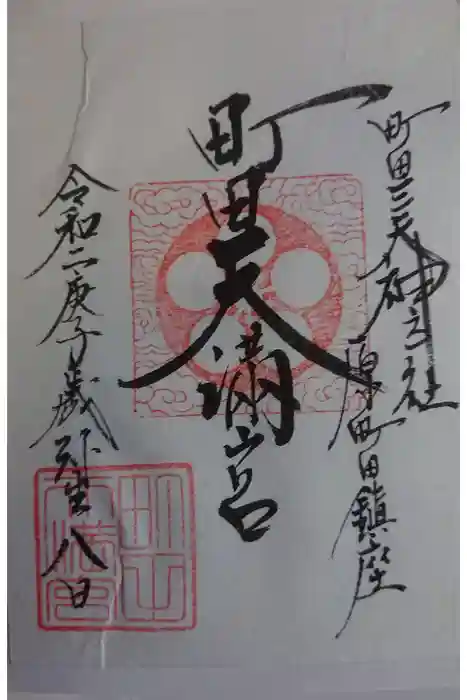 町田三天神之一社
原町田鎮座
町田天満宮
令和二庚子歳弥生八日
町田
天満宮